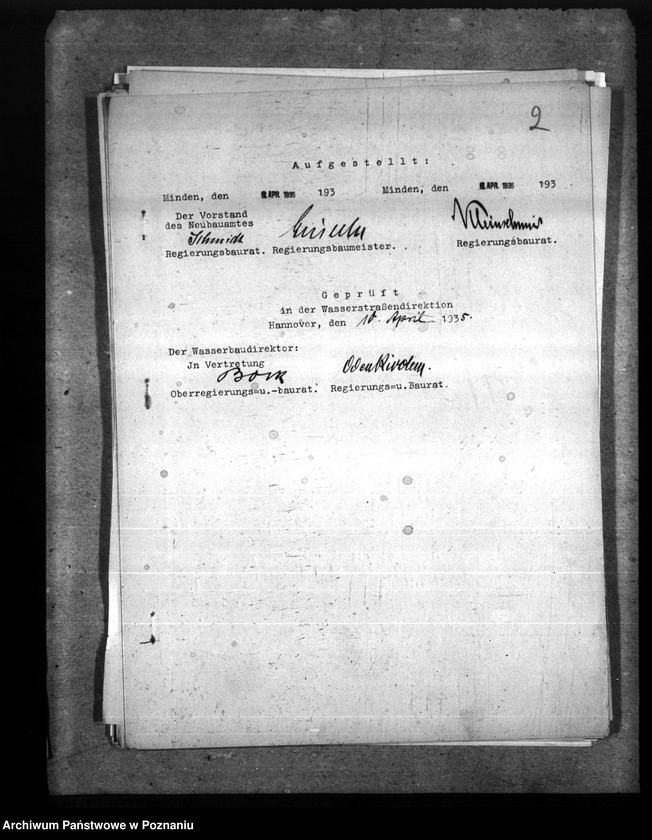 2
Aufgestellt:
Minden, den 8. APR. 1935 193 Minden, den 8. APR. 1935 193
Der Vorstand
des Neubauamtes
Schmidt
Regierungsbaurat. Regierungsbaumeister. Regierungsbaurat.
Geprüft
in der Wasserstraßendirektion
Hannover, den 10. April 1935.
Der Wasserbaudirektor:
Jn Vertretung
Bock
Oberregierungs=u.-baurat. Regierungs=u.Baurat.
Archiwum Państwowe w Poznaniu